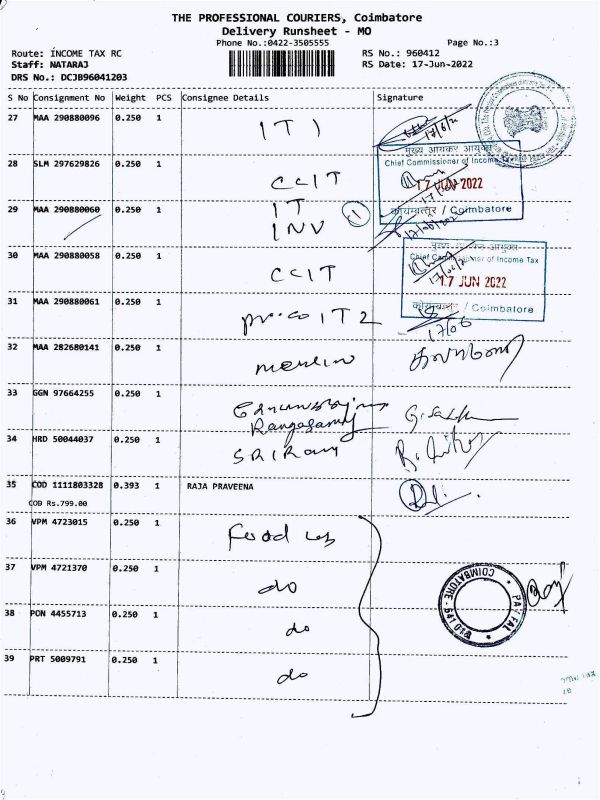 THE PROFESSIONAL COURIERS, Coimbatore
Delivery Runsheet - MO
Phone No.:0422-3505555
Page No.:3
Route: INCOME TAX RC
RS No.: 960412
Staff: NATARAJ
RS Date: 17-Jun-2022
DRS No.: DCJB96041203
S No Consignment No Weight PCS Consignee Details Signature
27 MAA 290880096 0.250 1
IT 1
17/6/2
मुख्य आयकर आयुक्त
Chief Commissioner of Income Tax
28 SLM 297629826 0.250 1
CCIT
17 JUN 2022
29 MAA 290880060 0.250 1
IT
INV
1
कोयम्बत्तूर / Coimbatore
30 MAA 290880058 0.250 1
CCIT
मुख्य आयकर आयुक्त
Chief Commissioner of Income Tax
17 JUN 2022
31 MAA 290880061 0.250 1
IT 2
/ Coimbatore
17/06
32 MAA 282680141 0.250 1
33 GGN 97664255 0.250 1
Rangasamy
34 HRD 50044037 0.250 1
SRIRam
35 COD 1111803328 0.393 1 RAJA PRAVEENA
COD Rs.799.00
36 VPM 4723015 0.250 1
37 VPM 4721370 0.250 1
do
COIMBATORE - 641 018
38 PON 4455713 0.250 1
do
39 PRT 5009791 0.250 1
do